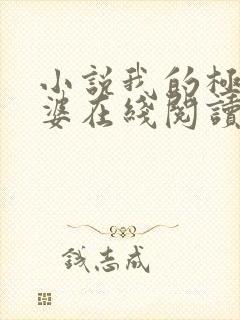 小説我的極
婆在綫閱讀
錢志成